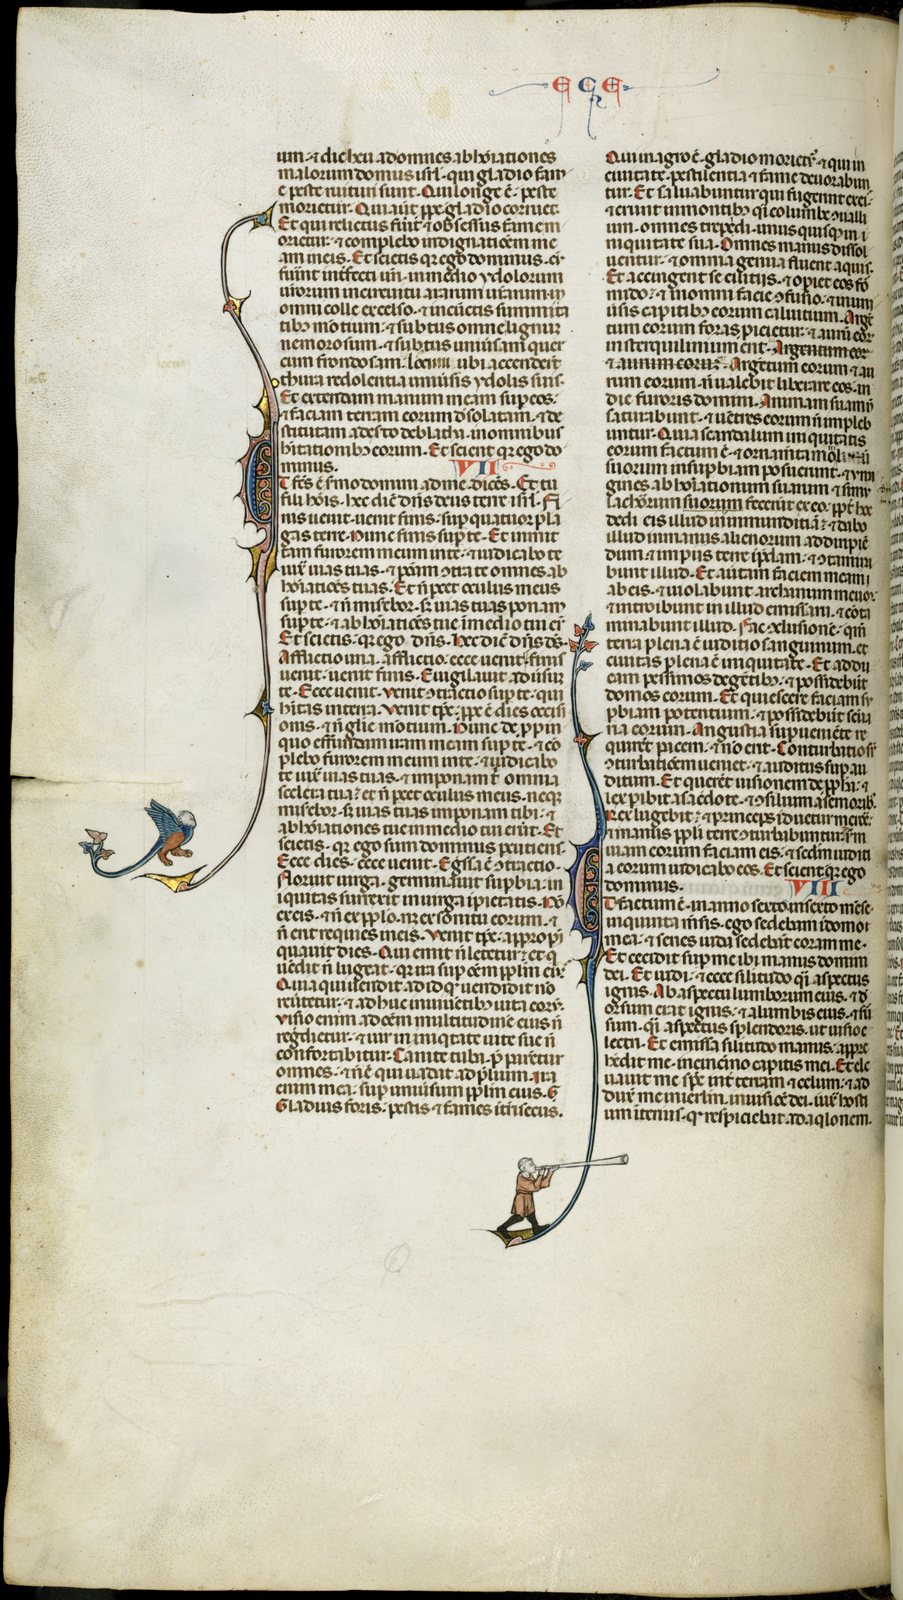 E C E
um· ⁊ dic heu ad omnes abhoĩationes
malorum domus isrl̃· qui gladio fam
e peste ruituri sunt· Qui longe ẽ· peste
morietur· Qui aũt ꝓpe gladio corruet·
Et qui relictus fũit ⁊ obsessus fame m
orietur· ⁊ complebo indignatiõem me
am in eis· Et scietis qꝛ ego dominus· cũ
fũint intfecti ur̃i in medio ydolorum
omni colle excelso· ⁊ in cũctis summita
tibꝫ motium· ⁊ subtus omne lignum
nemorosum· ⁊ subtus uniũsam quer
cum frondosam· locum ubi accenderũt
thura redolentia uniũsis ydolis suis·
Et extendam manum meam suꝑ eos·
⁊ faciam terram eorum d̾solatam· ⁊ de
stitutam a desto deblatha in omnibus
hĩtationibꝫ eorum· Et scient qꝛ ego do
minus· VII
Et fc̃s ẽ s̾mo domini ad me dicẽs· Et tu
fili hoĩs· hec diẽ dñs deus terre isrl̃· Fi
nis uenit· uenit finis· suꝑ quatuor pla
gas terre· Nunc finis suꝑ te· Et inmit
tam furorem meum in te· ⁊ iudicabo te
iux̃ uias tuas· ⁊ ponam ↄtra te omnes ab
hoĩatiões tuas· Et ñ ꝑcet oculus meus
suꝑ te· ⁊ ñ miseboꝛ· s̾ uias tuas ponam
suꝑ te· ⁊ abhoĩatiões tue ĩ medio tui eñt
Et scietis· qꝛ ego dñs· hec diẽ dñs ds̃·
Afflictio una· afflictio ecce uenit· finis
uenit· uenit finis· Euigilauit adũsũ
te· Ecce uenit· uenit ↄtractio suꝑ te· qui
hĩtas in terra· Uenit tp̃c· ꝓpe ẽ dies occisi
onis· ⁊ ñ glie motium· Nunc de ꝓpin
quo effundam iram meam suꝑ te· ⁊ co
plebo furorem meum in te· ⁊ iudicabo
te iux̃ uias tuas· ⁊ imponam t̾ omnia
scelera tua· et ñ ꝑcet oculus meus· neqꝫ
miseboꝛ· s̾ uias tuas imponam tibi· ⁊
abhoĩationes tue in medio tui erũt· Et
scietis· qꝛ ego sum dominus ꝑcutiens·
Ecce dies· ecce uenit· Egssa ẽ ↄtractio·
floruit uirga· germinauit suꝑbia· in
iquitas surrexit in uirga ĩpietatis· No
ex eis· ⁊ ñ ex ppl̃o· nꝫ ex sonitu eorum· ⁊
ñ erit requies in eis· Uenit tp̃c· appropi
quauit dies· Qui emit ñ letetur· et q̾
uẽdit ñ lugeat· qꝛ ira suꝑ oẽm ppl̃m eiꝰ·
Quia qui uendit ad id qd̾ uendidit no
reũtetur· ⁊ adhuc in uiuẽtibꝫ uita eorꝫ·
Uisio enim ad oẽm multitudinẽ eius ñ
regdietur· ⁊ uir in iniqtate uite sue ñ
confortabitur· Canite tuba· p̾parẽtur
omnes· ⁊ ñ ẽ qui uadat ad p̾lium· Ira
enim mea· suꝑ uniũsum ppl̃m eius· G
Gladius foris· pestis ⁊ fames ĩtrĩsecus·
Qui in agro ẽ· gladio morietꝛ· ⁊ qui in
ciuitate· pestilentia ⁊ fame deuorabun
tur· Et saluabuntur qui fugerint ex ei·
⁊ erunt in montibꝫ qͥ columbe ↄualli
um· omnes trepidi· unus quisqꝫ in i
niquitate sua· Omnes manus dissol
uentur· ⁊ omnia genua fluent aquis·
Et accingent se ciliciis· ⁊ oꝑiet eos fo
mido· ⁊ in omni facie ↄfusio· ⁊ in uni
ũsis capitibꝫ eorum caluitium· Argẽ
tum eorum foras ꝓicietur· ⁊ aurũ eoꝝ
in sterquilinium erit· Argentum eoꝝ
⁊ aurum eorum· Argẽtum eorum ⁊ au
rum eorum· ñ ualebit liberare eos· in
die furoris domini· Animam suam ñ
saturabunt· ⁊ uẽtres eorum ñ impleb
untur· Quia scandalum iniquitatis
eorum factum ẽ· ⁊ ornamta
suorum in suꝑbiam posuerunt· ⁊ yma
gines abhoĩationum suarum ⁊ simu
lachorum suorum fecerũt ex eo· ꝓpt̾ hoc
dedi eis illud in inmunditiã· ⁊ dabo
illud in manus alienorum ad dirĩpiẽ
dum· ⁊ impiis terre ĩp̾dam· ⁊ ↄtamĩa
bunt illud· Et aũtam faciem meam
ab eis· ⁊ uiolabunt archanum meum·
⁊ introibunt in illud emissarii· ⁊ cota
minabunt illud· Fac ↄclusionẽ· qm̃
terra plena ẽ iuditio sanguinum· et
ciuitas plena ẽ iniquitate· Et addu
cam pessimos de gẽtibꝫ· ⁊ possidebũt
domos eorum· Et quiescere faciam su
ꝑbiam potentium· ⁊ possidebũt sctua
ria eorum· Angustia suꝑueniẽte re
quirẽt pacem· ⁊ no erit· Conturbatio sꝛ
ↄturbatiõem ueniet· ⁊ auditus suꝑ au
ditum· Et querẽt uisionem de ꝓpha· ⁊
lex ꝑibit a sac̾dote· ⁊ ↄsilium a seniorib·
Rex lugebit· ⁊ princeps iduetur merore·
⁊ manus ppl̃i terre ↄturbabuntur· Scdm
uiam eorum faciam eis· ⁊ scdm iuditi
a eorum iudicabo eos· Et scient qꝛ ego
dominus· VIII
Et factum ẽ· in anno sexto· in sexto mẽse·
in quinta mẽsis· ego sedebam ĩ domo
mea· ⁊ senes iuda sedebãt coram me·
Et cecidit suꝑ me ibi manus domini
dei· Et uidi· ⁊ ecce silitudo qͥ aspectus
ignis· Ab aspectu lumborum eius· ⁊ d̾
orsum erat ignis· ⁊ a lumbis eius· ⁊ sũ
sum· qͥ aspectus splendoris· ut uisio e
lectri· Et emissa silitudo manus· appre
hẽdit me in cincino capitis mei· Et ele
uauit me sp̃c int̾ terram ⁊ celum· ⁊ ad
dux̾ me in ierlm̃· in uisiõe dei· iux̾ hosti
um ĩterius· q̾ respiciebat ad aqlonem·